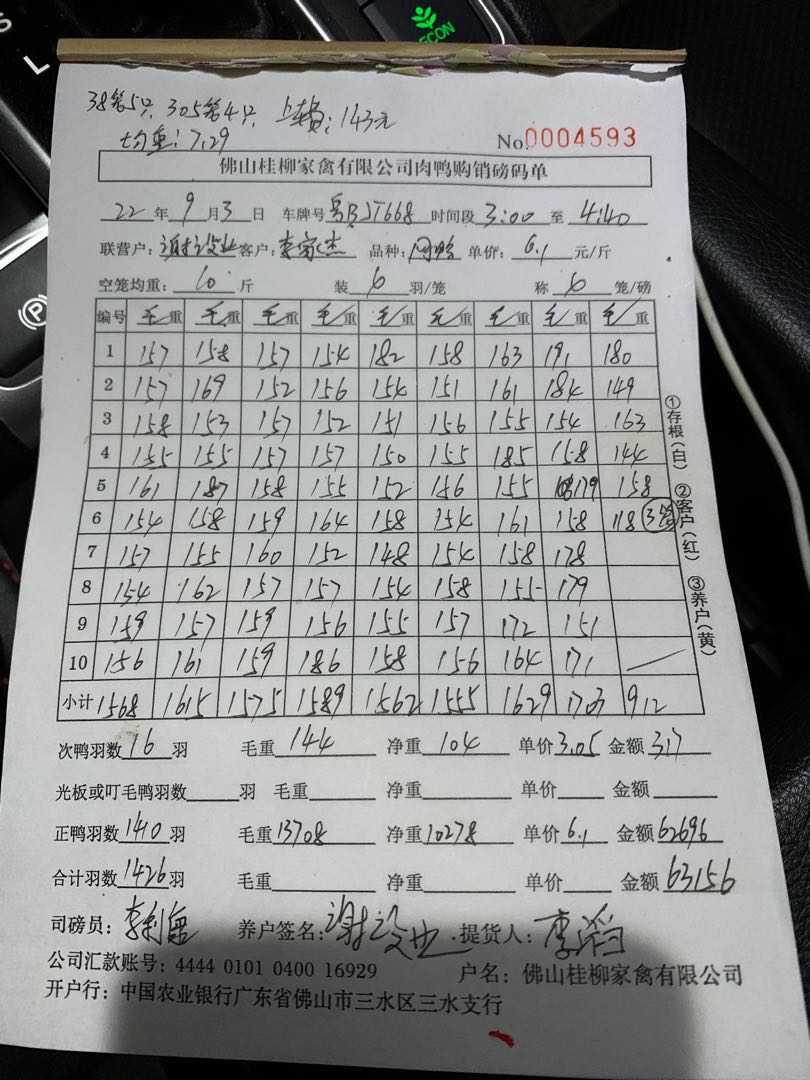 S
L
ECON
P
38笼5只, 305笼4只, 上车费: 143元
均重: 7.29
No.0004593
佛山桂柳家禽有限公司肉鸭购销磅码单
22年9月3日 车牌号粤BJT668 时间段3:00至4:40
联营户: 谢设业 客户: 李家杰 品种: 单价: 6.1元/斤
空笼均重: 10斤 装6羽/笼 称6笼/磅
编号 毛重 毛重 毛重 毛重 毛重 毛重 毛重 毛重 毛重
1 157 158 157 154 182 158 163 191 180
2 157 169 152 156 154 151 161 184 149
3 158 153 157 152 151 156 155 154 163
4 155 155 157 157 150 155 185 158 144
5 161 187 158 155 152 156 155 179 158
6 154 158 159 164 158 154 161 158 118 (3笼)
7 157 155 160 152 148 154 158 178
8 154 162 157 157 154 158 155 179
9 159 157 159 156 155 157 172 151
10 156 161 159 186 158 156 164 171 —
小计 1568 1615 1575 1589 1562 1555 1629 1703 912
次鸭羽数16羽 毛重144 净重104 单价3.05 金额317
光板或叮毛鸭羽数 羽 毛重 净重 单价 金额
正鸭羽数1410羽 毛重13708 净重10278 单价6.1 金额62696
合计羽数1426羽 毛重 净重 单价 金额63156
司磅员: 养户签名: 谢设业 提货人: 李滔
公司汇款账号: 4444 0101 0400 16929 户名: 佛山桂柳家禽有限公司
开户行: 中国农业银行广东省佛山市三水区三水支行
①存根(白) ②客户(红) ③养户(黄)